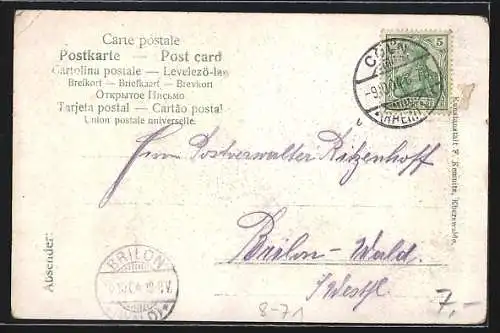 Carte postale
Postkarte — Post card
Cartolina postale — Levelező-lap
Breikort — Briefkaart — Brevkort
Открытое Письмо
Tarjeta postal — Cartão postal
Union postale universelle.
5
CÖLN
(RHEIN)
Herrn Postverwalter Ritzenhoff
Brilon-Wald.
i/Westf.
Absender:
BRILON
(WALD)
Kunstanstalt F. Eberswalde.
8-71
7,-